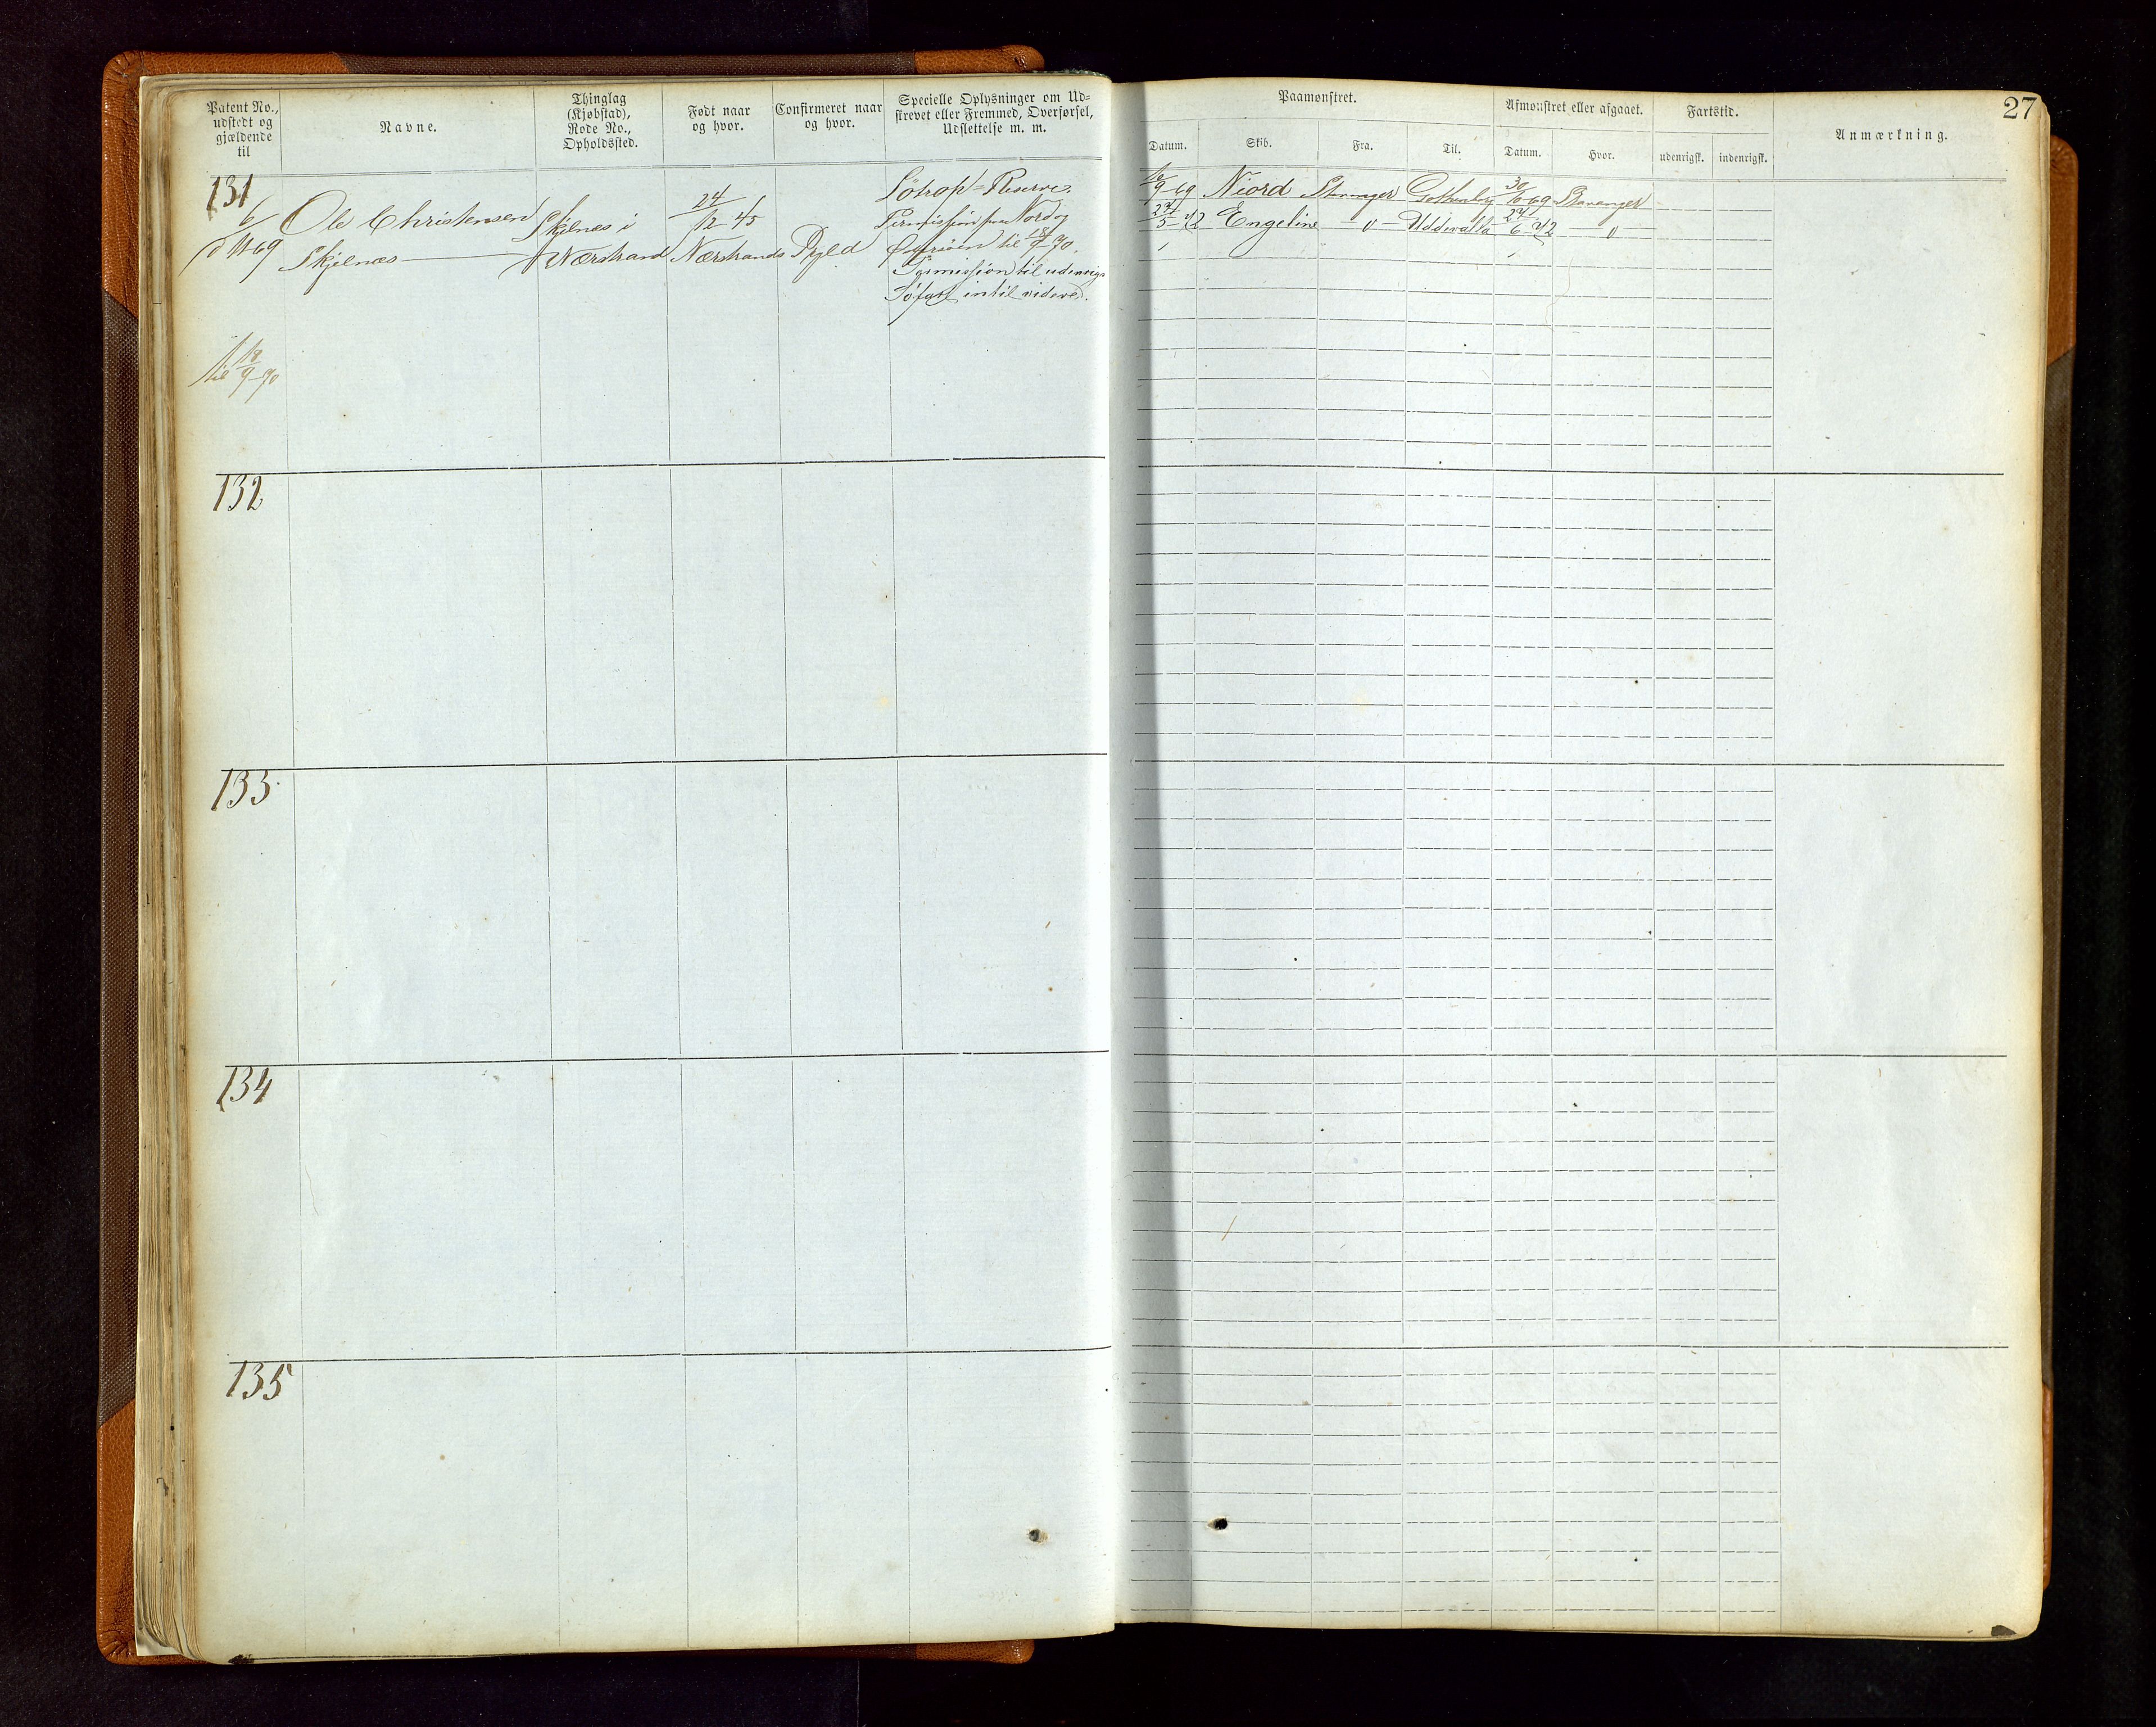 Patent No.,
udstedt og
gjældende
til
Navne.
Thinglag
(Kjøbstad),
Rode No.,
Opholdssted.
Født naar
og hvor.
Confirmeret naar
og hvor.
Specielle Oplysninger om Ud-
skrevet eller Fremmed, Overførsel,
Udslettelse m. m.
131
6
69
Ole Christensen
Skjelnæs
Skjelnæs i
Nærstrand
24
12 45
Nærstrands
Søtrop Reserve
Permission fra Nord og
til 18/9 70.
Permission til udenrigs
Søfart intil videre.
til 18/9 70
132
133
134
135
27
Paamønstret.
Afmønstret eller afgaaet.
Fartstid.
Anmærkning.
Datum.
Skib.
Fra.
Til.
Datum.
Hvor.
udenrigsk.
indenrigsk.
16/9 69 Niord Stavanger Gothenborg 30/10 69 Stavanger
27/5 72 Engeline — " — Uddevalla 27/6 72 — " —